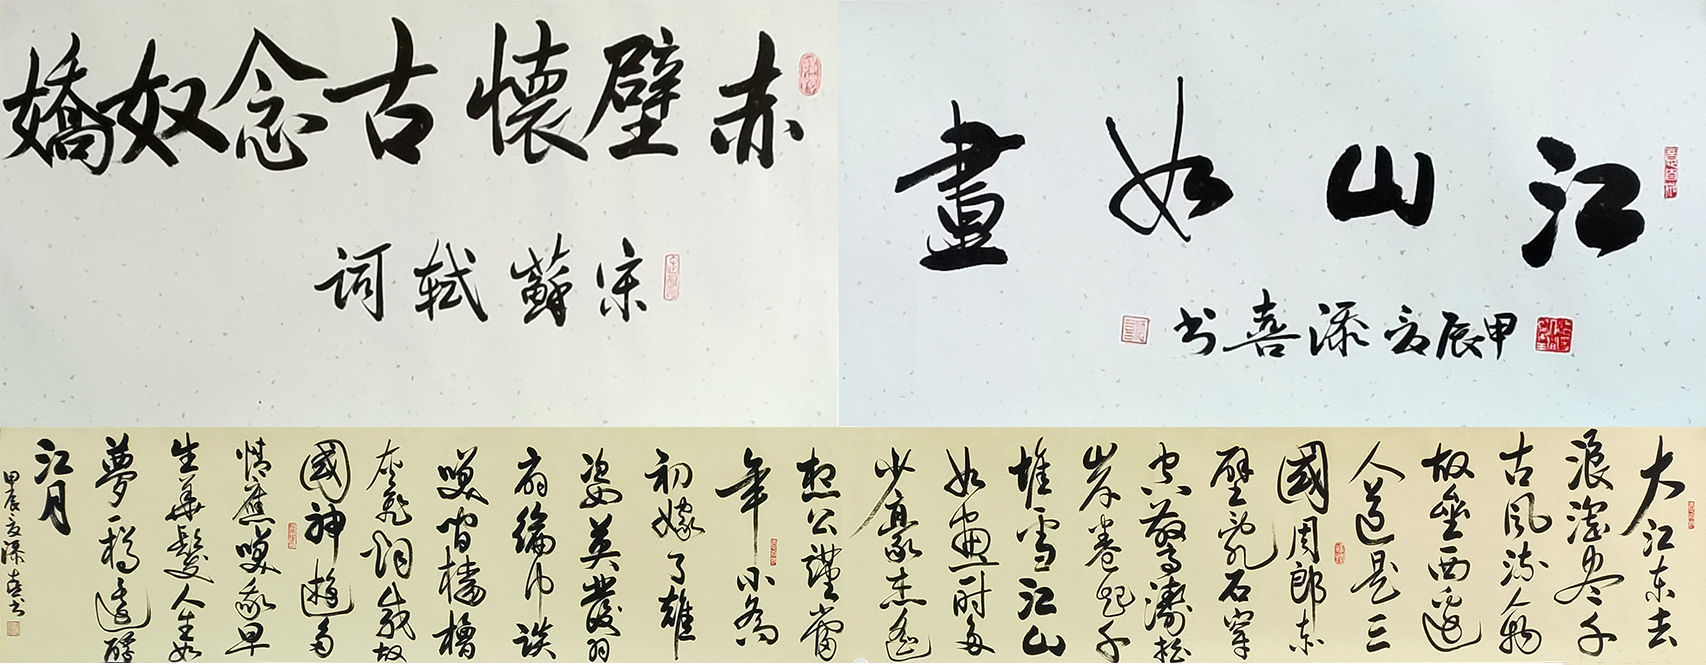 赤壁懷古念奴嬌
宋蘇軾詞
江山如畫
甲辰夏添喜书
大江东去
浪淘尽千
古风流人物
故壘西邊
人道是三
國周郎赤
壁乱石穿
空驚濤拍
岸卷起千
堆雪江山
如畫一时多
少豪杰遥
想公瑾當
年小喬
初嫁了雄
姿英發羽
扇綸巾談
笑间樯櫓
灰飛烟滅故
國神遊多
情應笑我早
生華髮人生如
夢一樽還酹
江月
甲辰夏添喜书